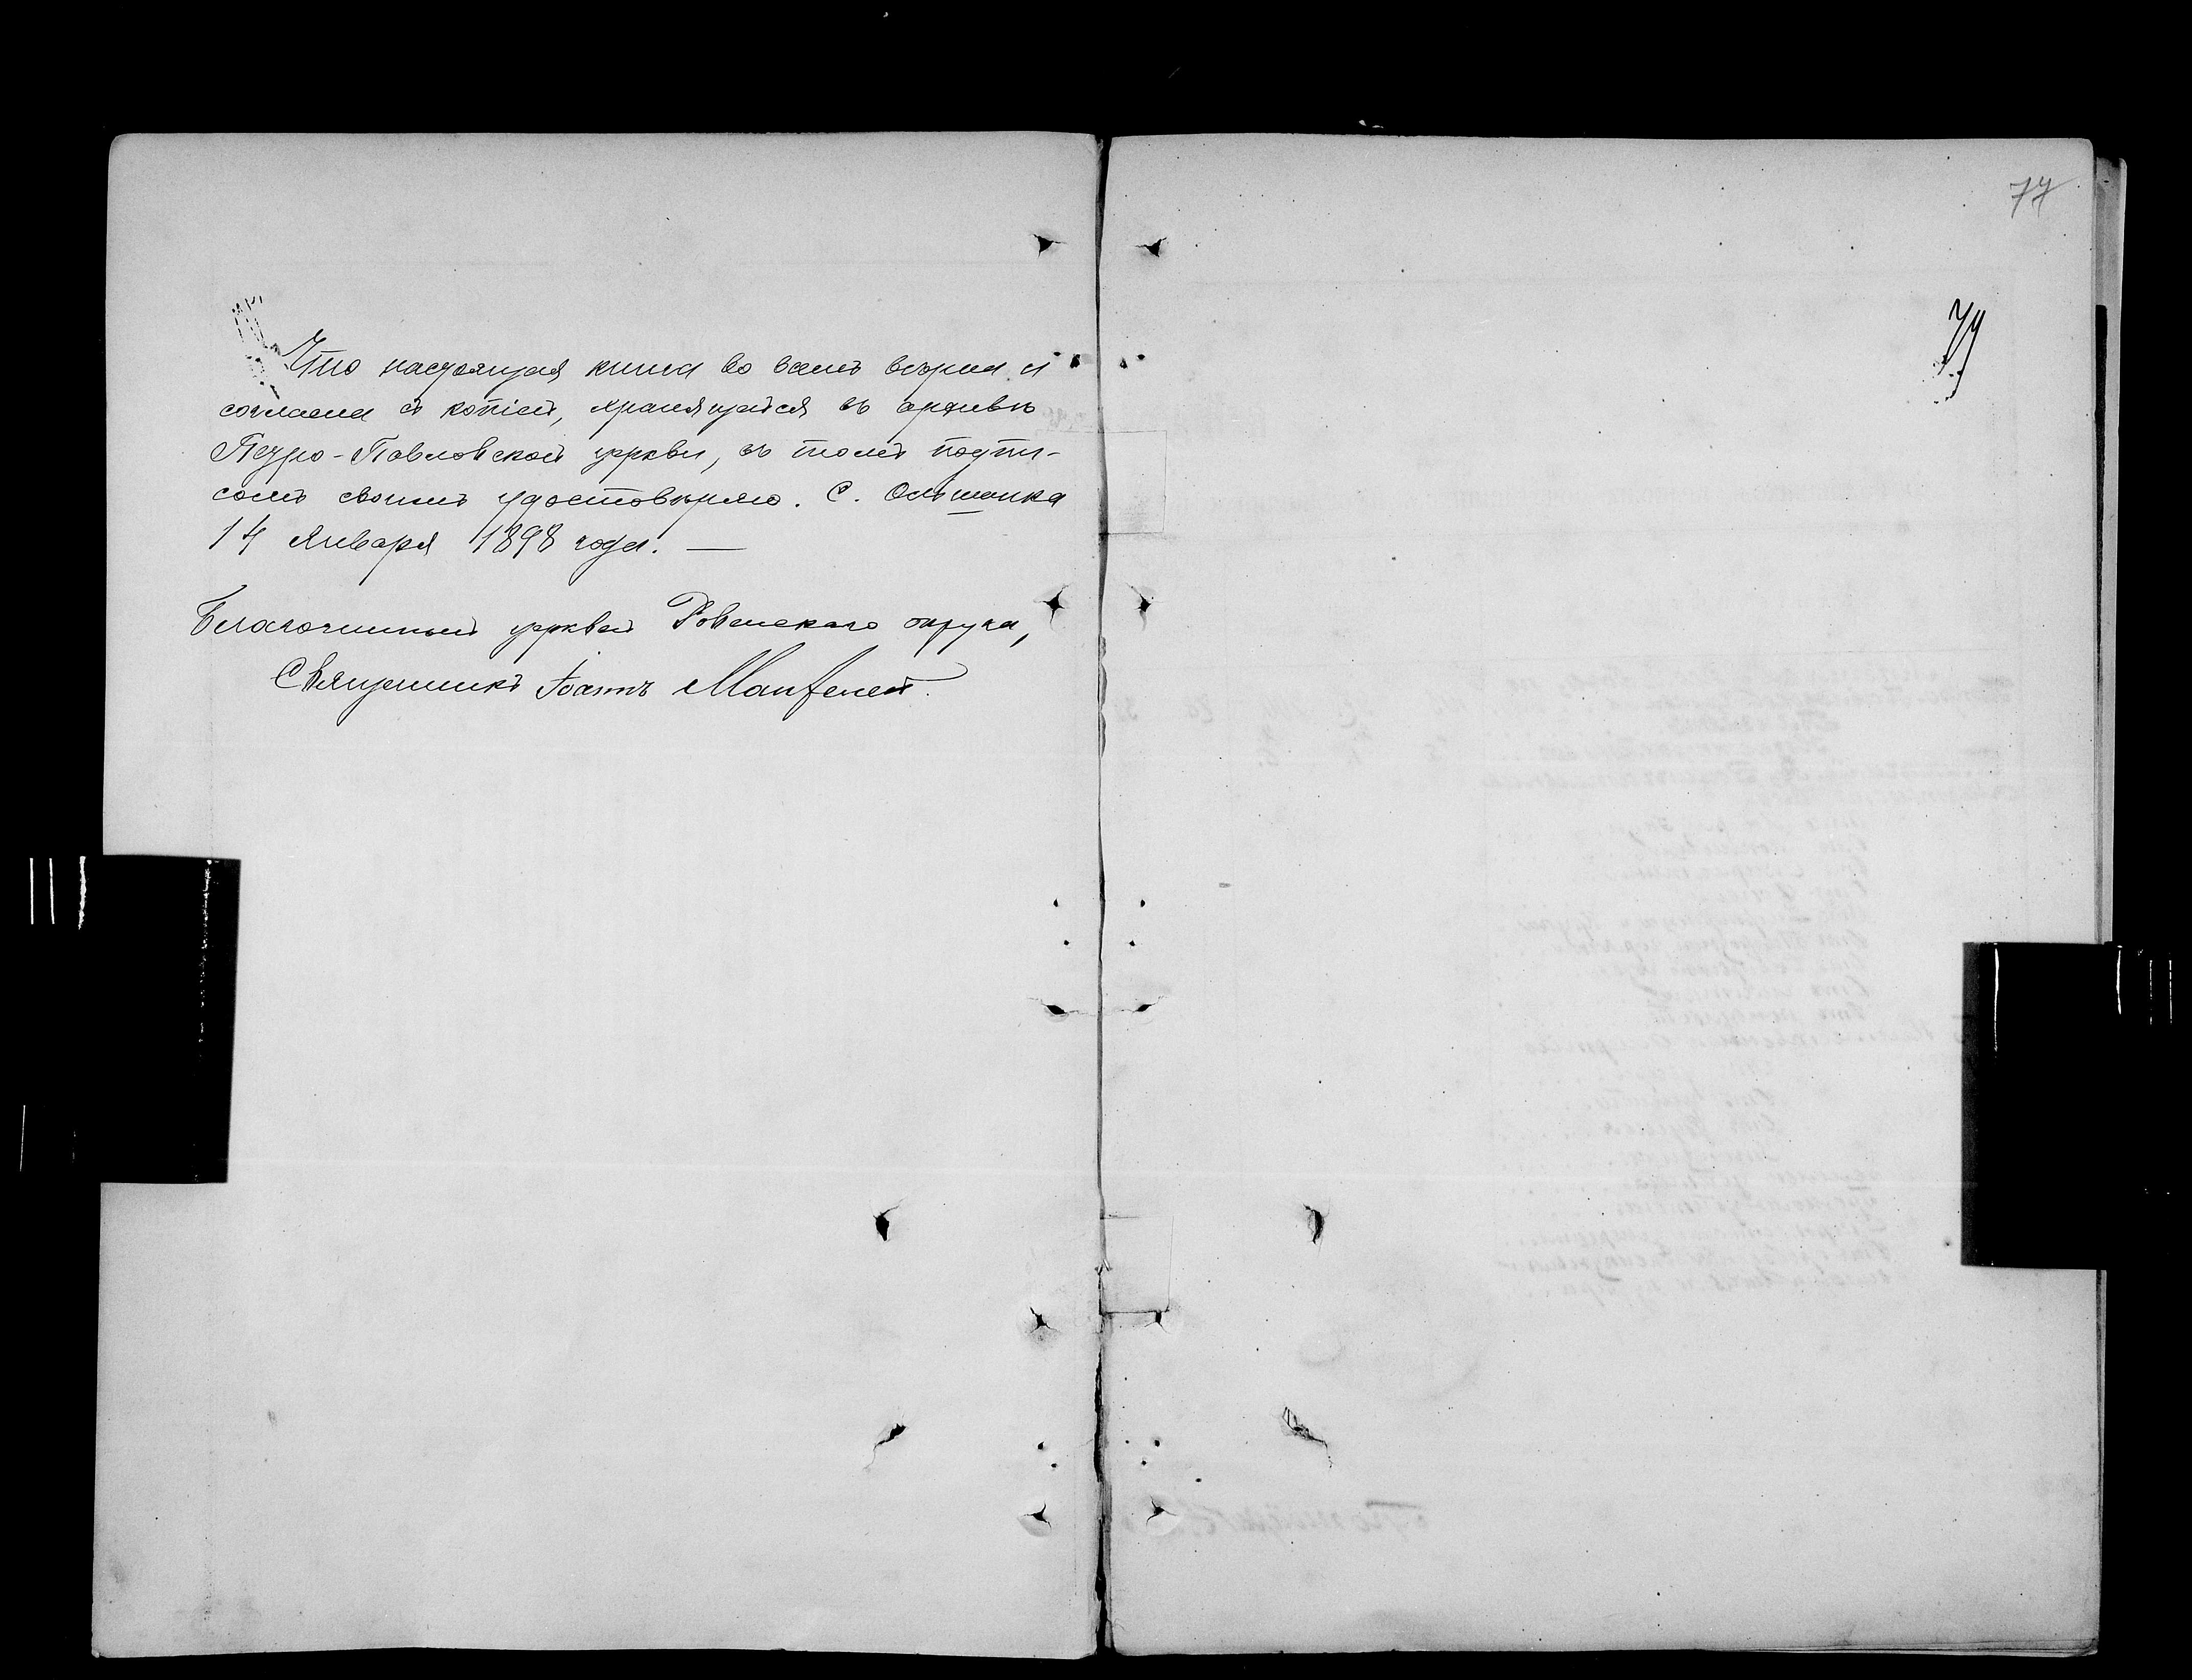 Что настоящая книга во всемъ вѣрна и
согласна съ копіей, хранящейся въ архивѣ
Петро-Павловской церкви, въ томъ подпи-
сомъ своимъ удостовѣряю. С. Ольшанка
14 января 1898 года. —
Благочинный церквей Ровенскаго округа,
Священникъ Іоаннъ
77